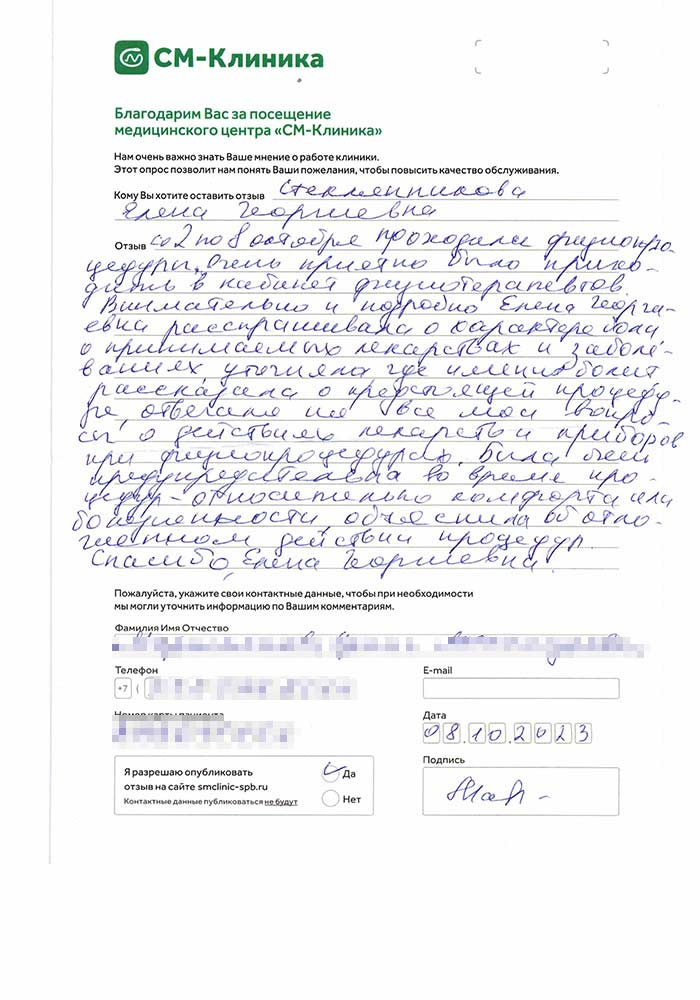 СМ-Клиника
Благодарим Вас за посещение
медицинского центра «СМ-Клиника»
Нам очень важно знать Ваше мнение о работе клиники.
Этот опрос позволит нам понять Ваши пожелания, чтобы повысить качество обслуживания.
Кому Вы хотите оставить отзыв Стеклянникова
Елена Георгиевна
Отзыв со 2 по 8 октября проходила физиопро-
цедуры. Очень приятно было прихо-
дить в кабинет физиотерапевтов.
Внимательно и подробно Елена Георги-
евна расспрашивала о характере боли
о принимаемых лекарствах и заболе-
ваниях уточняла где именно болит
рассказала о предстоящей процеду-
ре, ответила на все мои вопро-
сы, о действиях лекарств и приборов
при физиопроцедурах. Была очень
предупредительна во время про-
цедур - относительно комфорта или
болезненности, объяснила об отло-
женном действии процедур.
Спасибо, Елена Георгиевна.
Пожалуйста, укажите свои контактные данные, чтобы при необходимости
мы могли уточнить информацию по Вашим комментариям.
Фамилия Имя Отчество
Телефон
E-mail
+7 (
Номер карты пациента
Дата
08.10.2023
Подпись
Я разрешаю опубликовать
отзыв на сайте smclinic-spb.ru
Контактные данные публиковаться не будут
Да
Нет